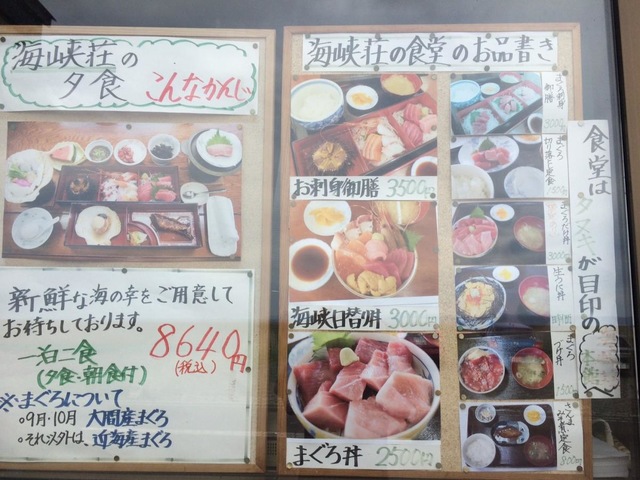 海峡荘の
夕食 こんなかんじ
新鮮な海の幸をご用意して
お待ちしております。
一泊二食
(夕食・朝食付)
8640円
(税込)
※まぐろについて
○9月・10月 大間産まぐろ
○それ以外は、近海産まぐろ
海峡荘の食堂のお品書き
お刺身御膳 3500円
海峡日替り丼 3000円
まぐろ丼 2500円
まぐろ
切り落とし定食
まぐろだけ丼
3000
生うに丼
時価
まぐろ
づけ丼
1500
さんま
みそ煮定食
800円
食堂は
タヌキが目印の